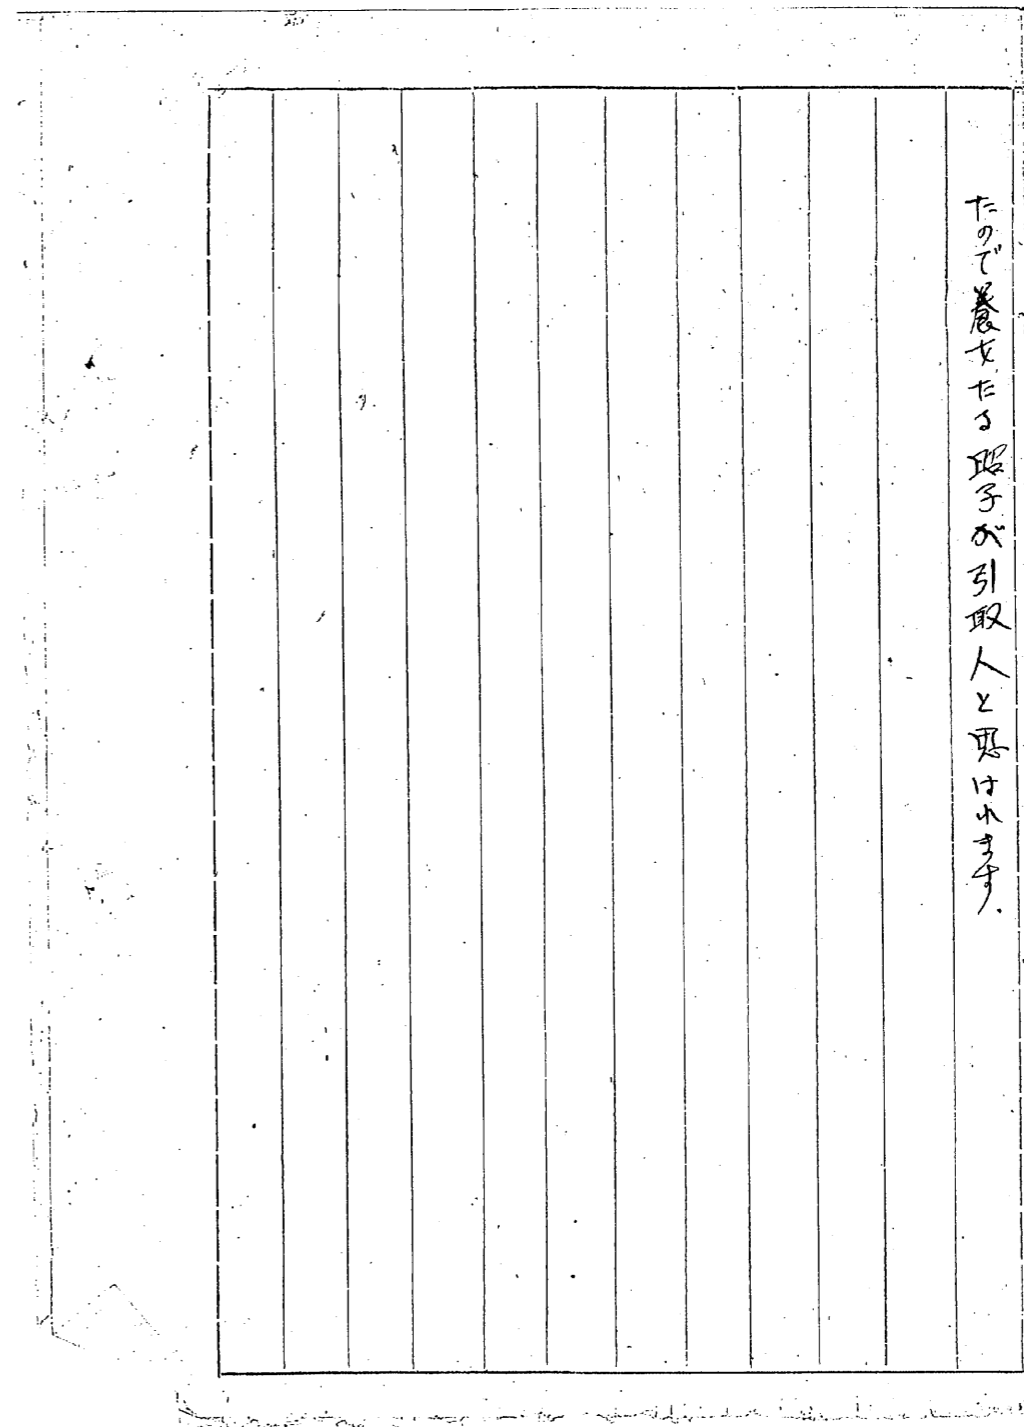 たので養女たる昭子が引取人と思はれます.